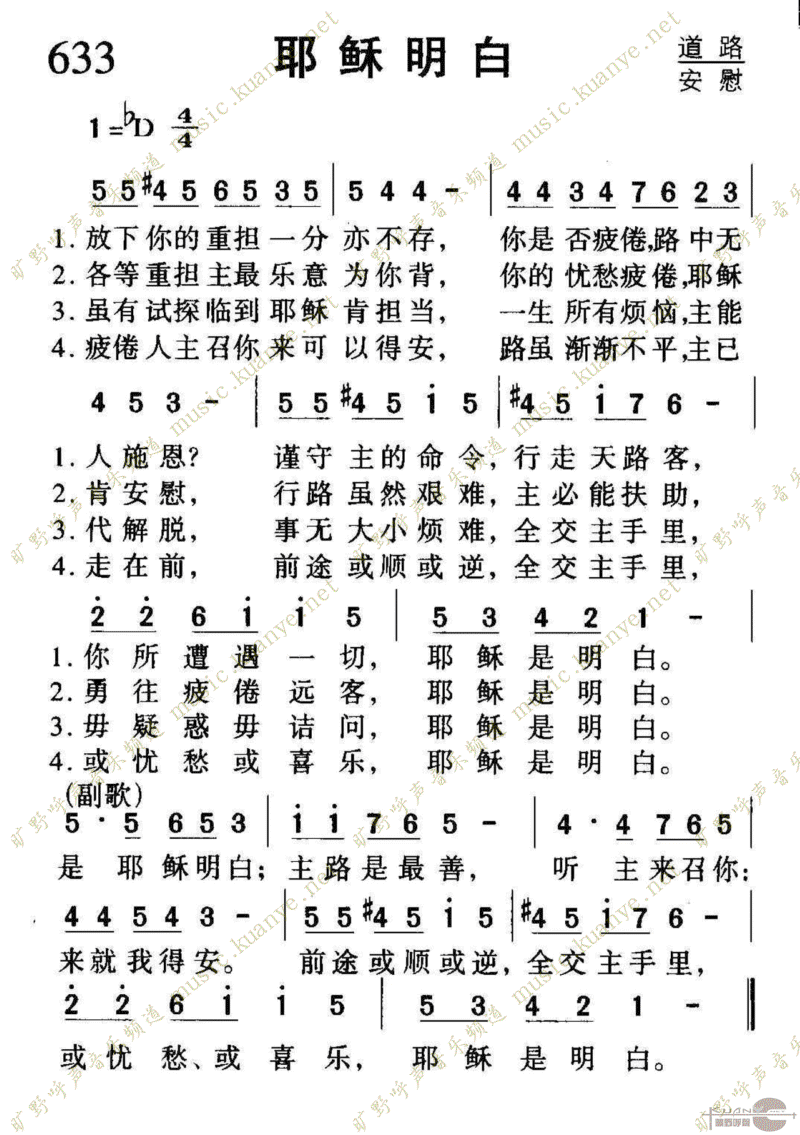 633 耶稣明白 道路
安慰
1=♭D 4/4
5 5 #4 5 6 5 3 5 | 5 4 4 - | 4 4 3 4 7 6 2 3 |
1. 放下你的重担一分亦不存， 你是否疲倦,路中无
2. 各等重担主最乐意为你背， 你的忧愁疲倦,耶稣
3. 虽有试探临到耶稣肯担当， 一生所有烦恼,主能
4. 疲倦人主召你来可以得安， 路虽渐渐不平,主已
4 5 3 - | 5 5 #4 5 i 5 | #4 5 i 7 6 - |
1. 人施恩? 谨守主的命令，行走天路客，
2. 肯安慰， 行路虽然艰难，主必能扶助，
3. 代解脱， 事无大小烦难，全交主手里，
4. 走在前， 前途或顺或逆，全交主手里，
2̇ 2̇ 6 i i 5 | 5 3 4 2 1 - |
1. 你所遭遇一切， 耶稣是明白。
2. 勇往疲倦远客， 耶稣是明白。
3. 毋疑惑毋诘问， 耶稣是明白。
4. 或忧愁或喜乐， 耶稣是明白。
(副歌)
5 · 5 6 5 3 | i i 7 6 5 - | 4 · 4 7 6 5 |
是耶稣明白；主路是最善， 听主来召你：
4 4 5 4 3 - | 5 5 #4 5 i 5 | #4 5 i 7 6 - |
来就我得安。 前途或顺或逆，全交主手里，
2̇ 2̇ 6 i i 5 | 5 3 4 2 1 - ‖
或忧愁、或喜乐， 耶稣是明白。
旷野呼声音乐频道 music.kuanye.net
KUANYE.NET
旷野呼声